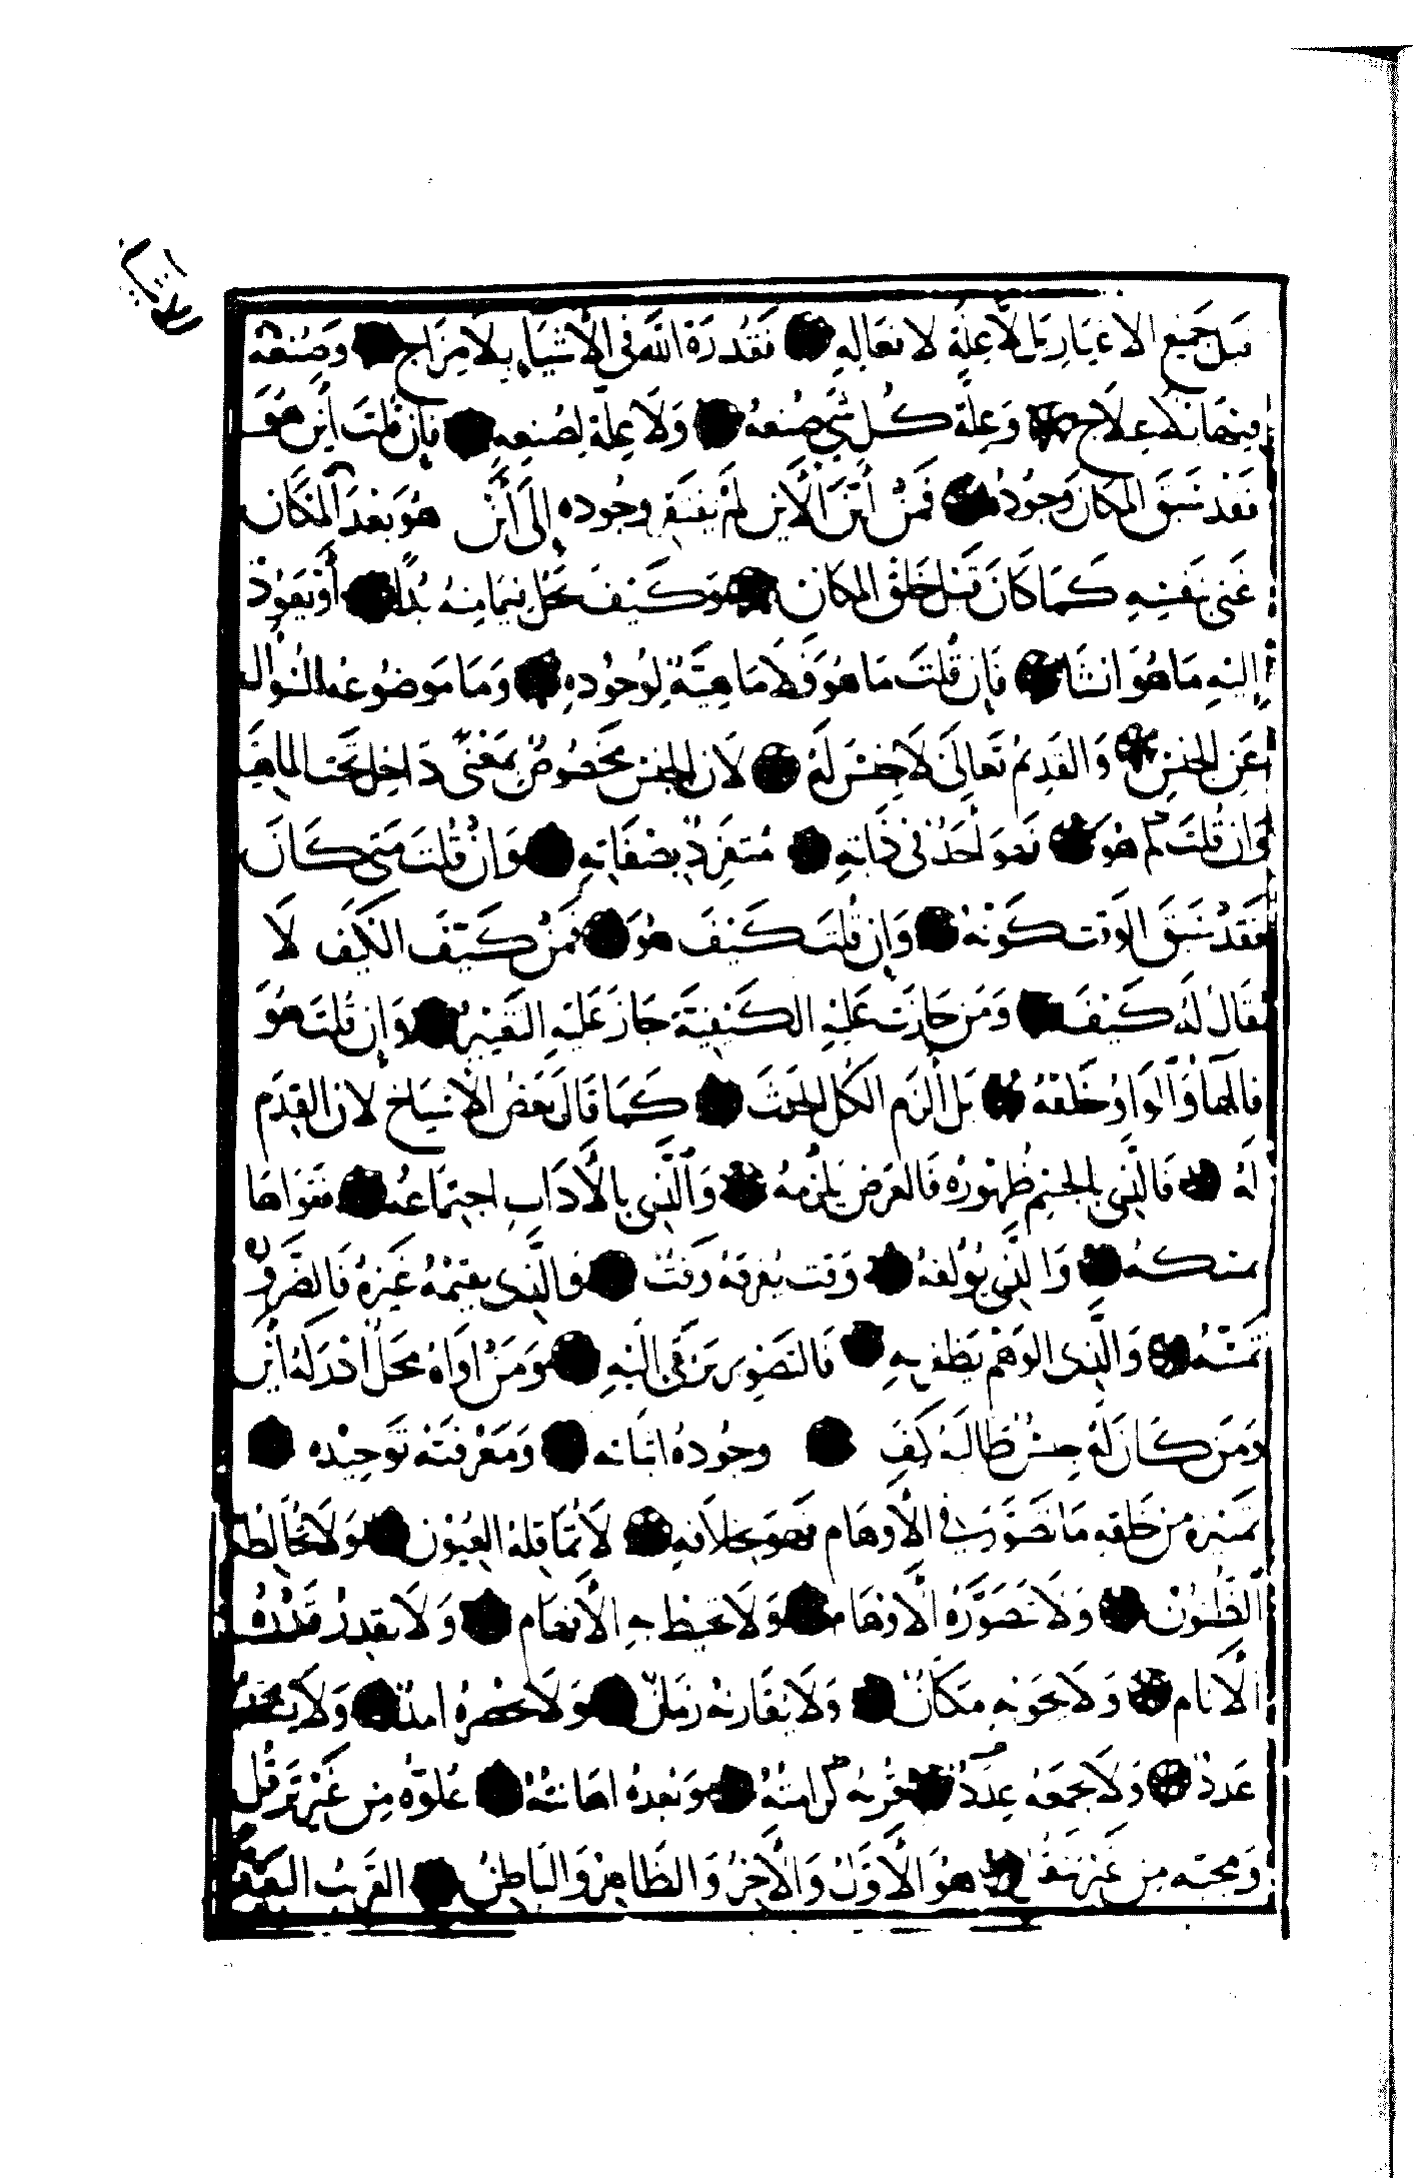 قبل جميع الأغيار بل لا علة لافعاله فقدرة الله في الأشياء بلا مزاج وصنعه
فيها بلا علاج وعلة كل شي صنعه ولا علة لصنعه فإن قلت أين هو
فقد سبق المكان وجوده فمن أين الأين لم يفتقر وجوده إلى أين هو بعد المكان
غني بنفسه كما كان قبل خلق المكان وكيف يحل فيما منه بدا أو يعود
إليه ما هو انشا فإن قلت ما هو فلا ماهية لوجوده وما موضوعه للسؤال
عن الجنس والقديم تعالى لا جنس له لأن الجنس مخصوص بمعنى داخل تحت الماهية
وإن قلت كم هو فهو أحد في ذاته متفرد بصفاته وإن قلت متى كان
فقد سبق الوقت كونه وإن قلت كيف هو فمن كيف الكيف لا
يقال له كيف ومن جازت عليه الكيفية جاز عليه التغيير وإن قلت هو
فالهاء والواو خلقه بل ألزم الكل الحدث كما قال بعض الأشياخ لأن القدم
له فالذي بالجسم ظهوره فالعرض يلزمه والذي بالأداب اجتماعه فقواها
تمسكه والذي يؤلفه وقت يفرقه وقت والذي يقيمه غيره فالضرورة
تمسه والذي الوهم يظفر به فالتصوير يرتقي إليه ومن اواه محل ادركه أين
ومن كان له جنس طالبه كيف وجوده اثباته ومعرفته توحيده
تمييزه من خلقه ما تصور في الأوهام فهو بخلافه لا تماقله العيون ولا تخالطه
الظنون ولا تصوره الأوهام ولا تحيط به الأفهام ولا يقدر قدره
الأنام ولا يحويه مكان ولا يقارنه زمان ولا يحصره امد ولا
عدد ولا يجمعه عدد قربه كرامته وبعده اهانته علوه من غير توقل
ومجيئه من غير تنقل هو الأول والآخر والظاهر والباطن القريب البعيد